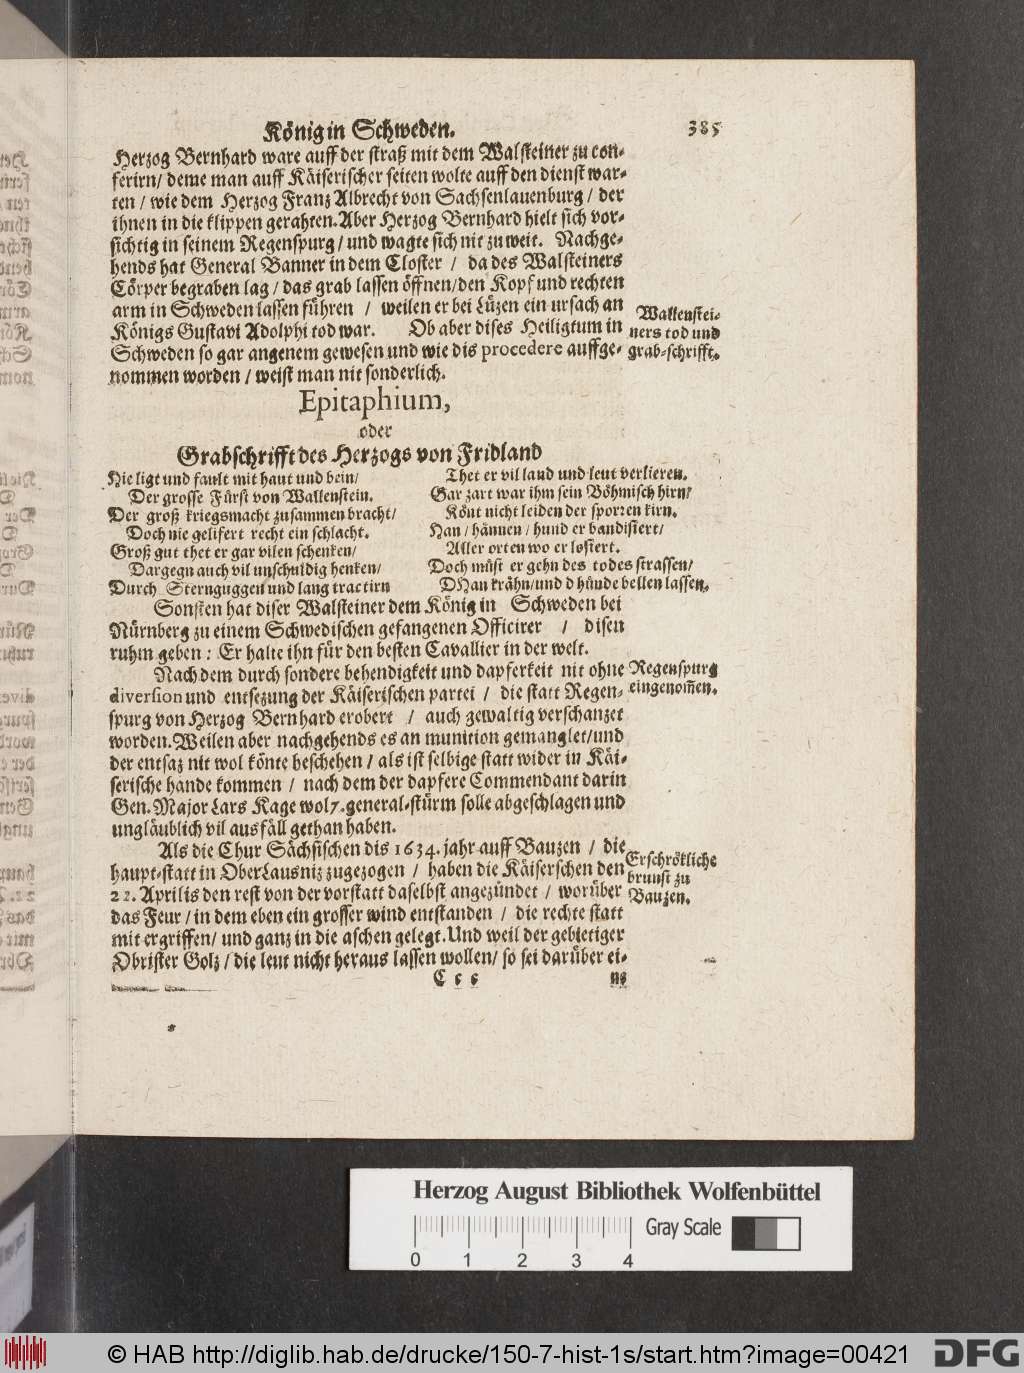 König in Schweden. 385
Herzog Bernhard ware auff der straß mit dem Walsteiner zu con-
ferirn/ deme man auff Käiserischer seiten wolte auff den dienst war-
ten / wie dem Herzog Franz Albrecht von Sachsenlauenburg / der
ihnen in die klippen gerahten. Aber Herzog Bernhard hielt sich vor-
sichtig in seinem Regenspurg / und wagte sich nit zu weit. Nachge-
hends hat General Banner in dem Closter / da des Walsteiners
Cörper begraben lag / das grab lassen öffnen/den Kopf und rechten
arm in Schweden lassen führen / weilen er bei Lüzen ein ursach an
Königs Gustavi Adolphi tod war. Ob aber dises Heiligtum in
Schweden so gar angenem gewesen und wie dis procedere auffge-
nommen worden / weist man nit sonderlich.
Wallenstei-
ners tod und
grab-schrifft.
Epitaphium,
oder
Grabschrifft des Herzogs von Fridland
Hie ligt und fault mit haut und bein/
Der grosse Fürst von Wallenstein.
Der groß kriegsmacht zusammen bracht/
Doch nie gelifert recht ein schlacht.
Groß gut thet er gar vilen schenken/
Dargegn auch vil unschuldig henken/
Durch Sternguggen und lang tractirn
Thet er vil land und leut verlieren.
Gar zart war ihm sein Böhmisch hirn/
Könt nicht leiden der sporren kirn.
Han / hännen / hund er bandisiert/
Aller orten wo er losiert.
Doch müst er gehn des todes strassen/
D Han krähn/ und d hünde bellen lassen.
Sonsten hat diser Walsteiner dem König in Schweden bei
Nürnberg zu einem Schwedischen gefangenen Officirer / disen
ruhm geben : Er halte ihn für den besten Cavallier in der welt.
Nach dem durch sondere behendigkeit und dapferkeit nit ohne
diversion und entsezung der Käiserischen partei / die statt Regen-
spurg von Herzog Bernhard erobert / auch gewaltig verschanzet
worden. Weilen aber nachgehends es an munition gemanglet/und
der entsaz nit wol könte beschehen / als ist selbige statt wider in Käi-
serische hande kommen / nach dem der dapfere Commendant darin
Gen. Major Lars Kage wol 7. general-stürm solle abgeschlagen und
ungläublich vil ausfäll gethan haben.
Regenspurg
eingenom̃en.
Als die Chur Sächsischen dis 1634. jahr auff Bauzen / die
haupt-statt in Ober Lausniz zugezogen / haben die Käiserschen den
22. Aprilis den rest von der vorstatt daselbst angezündet / worüber
das Feur / in dem eben ein grosser wind entstanden / die rechte statt
mit ergriffen/ und ganz in die aschen gelegt. Und weil der gebietiger
Obrister Golz / die leut nicht heraus lassen wollen/ so sei darüber ei-
Erschrökliche
brunst zu
Bauzen.
C c c ne
Herzog August Bibliothek Wolfenbüttel
Gray Scale
0 1 2 3 4
© HAB http://diglib.hab.de/drucke/150-7-hist-1s/start.htm?image=00421
DFG